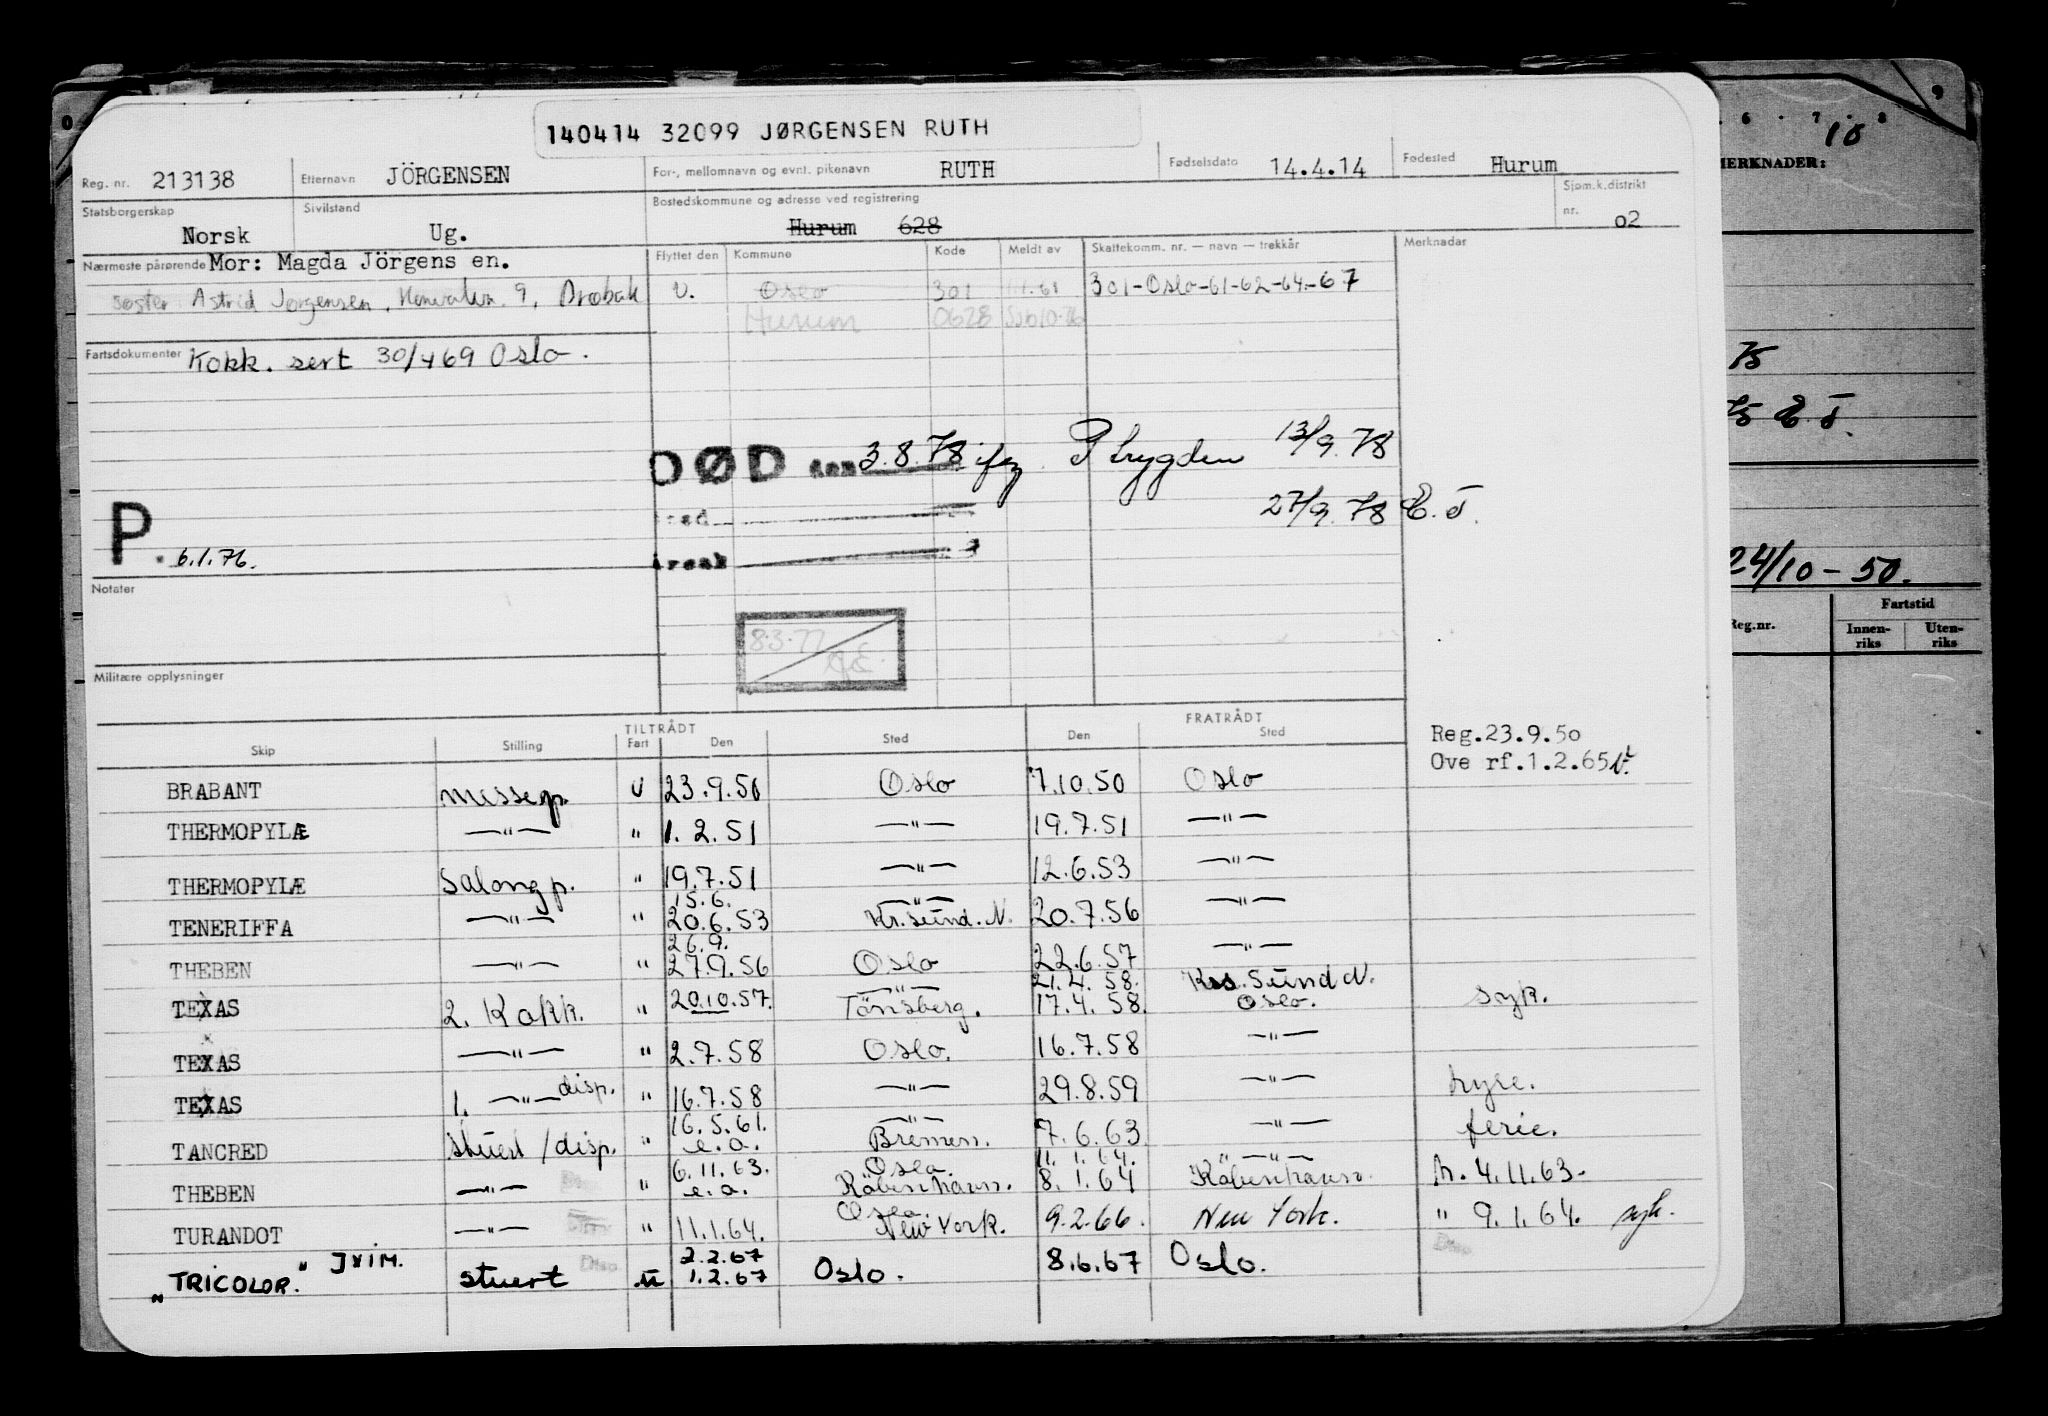 140414 32099 JØRGENSEN RUTH
Reg. nr. 213138 Etternavn JÖRGENSEN For-, mellomnavn og evnt. pikenavn RUTH Fødselsdato 14.4.14 Fødested Hurum
Statsborgerskap Norsk Sivilstand Ug. Bostedskommune og adresse ved registrering Hurum 628 Sjøm.k.distrikt nr. 02
Nærmeste pårørende Mor: Magda Jörgens en. Flyttet den Kommune Kode Meldt av Skattekomm. nr. — navn — trekkår Merknader
søster Astrid Jørgensen, 9, Drøbak U. Oslo 301 1.1.61 301-Oslo-61-62-64-67
Hurum 0628
Fartsdokumenter Kokk. sert 30/469 Oslo.
DØD den 3.8.78 ifg P trygden 13/9.78
Sted 27/9.78 E.T.
P. 6.1.76.
Årsak
Notater
8.3.77
Militære opplysninger
TILTRÅDT FRATRÅDT
Skip Stilling Fart Den Sted Den Sted
Reg.23.9.50
Ove rf.1.2.65
BRABANT messep. U 23.9.50 Oslo 7.10.50 Oslo
THERMOPYLÆ —"— " 1.2.51 —"— 19.7.51 —"—
THERMOPYLÆ Salongp. " 19.7.51 —"— 12.6.53 —"—
15.6. —"—
TENERIFFA —"— " 20.6.53 Kr.sund.N. 20.7.56 —"—
26.9.
THEBEN —"— " 27.9.56 Oslo 22.6.57 —"—
—"— 21.4.58. Krs.Sund N.
TEXAS 2. Kokk. " 20.10.57. Tönsberg. 17.4.58. Oslo. syk.
TEXAS —"— " 2.7.58 Oslo. 16.7.58 —"—
TEXAS 1. —"— disp. " 16.7.58 —"— 29.8.59 —"— hyre.
16.5.61. —"—
TANCRED stuert/disp. " e.a. Bremen. 7.6.63 —"— ferie.
6.11.63. Oslo. 11.1.64. —"—
THEBEN —"— " e.a. Köbenhavn. 8.1.64 Köbenhavn. h. 4.11.63.
Oslo.
TURANDOT —"— " 11.1.64. New York. 9.2.66. New York. " 9.1.64. syk.
2.2.67
"TRICOLOR." JXIM. stuert Disp. U 1.2.67 Oslo. 8.6.67 Oslo.
6 · 7 · 8 9
10
MERKNADER:
75
75 E.T.
24/10-50.
Reg.nr. Fartstid
Innen-
riks Uten-
riks